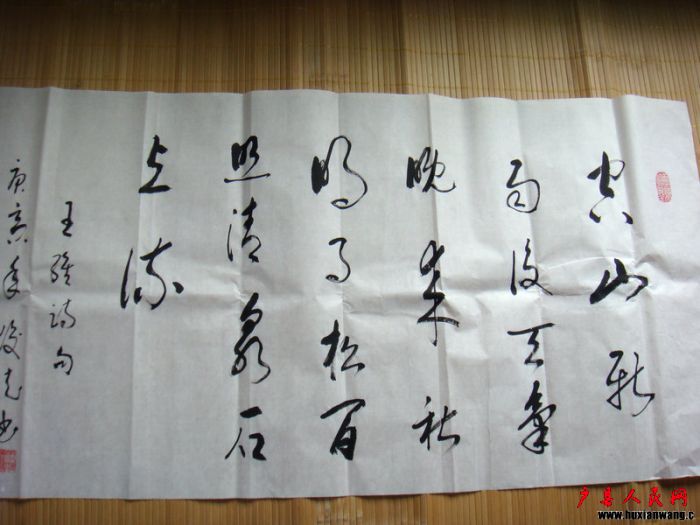 空山新
雨後天氣
晚來秋
明月松間
照清泉石
上流
王維詩句
庚寅年
户县人民网
www.huxianwang.c